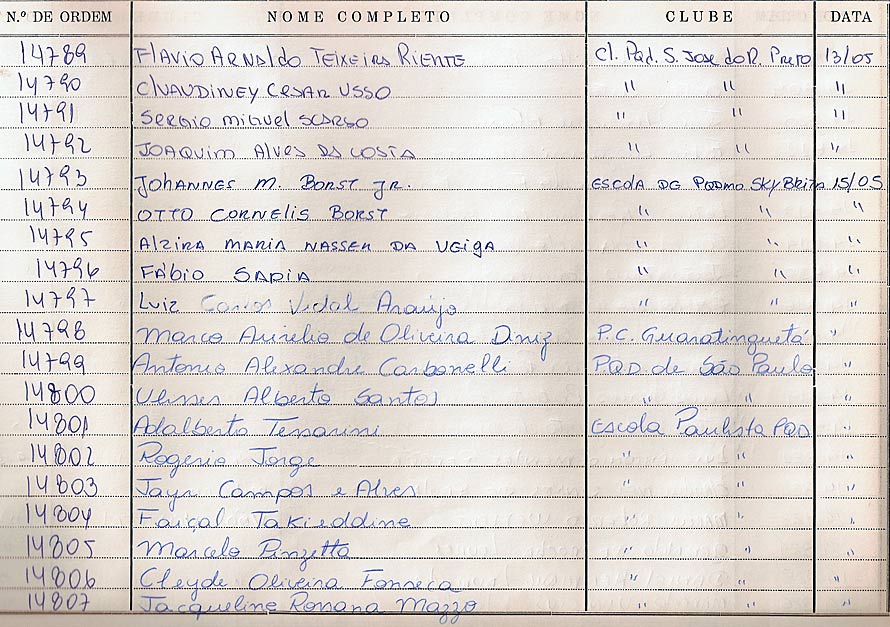 N.º DE ORDEM NOME COMPLETO CLUBE DATA
14789 FLAVIO ARNALDO TEIXEIRA RIENTE Cl. Pqd. S. JOSE do R. PRETO 13/05
14790 CLAUDINEY CESAR USSO " " "
14791 SERGIO MIGUEL SCARSO " " "
14792 JOAQUIM ALVES DA COSTA " " "
14793 JOHANNES M. BORST JR. ESCOLA DE PQDMO SKY BRITA 15/05
14794 OTTO CORNELIS BORST " " "
14795 ALZIRA MARIA NASSER DA VEIGA " " "
14796 FÁBIO SAPIA " " "
14797 Luiz Carlos Vidal Araújo " " "
14798 Marco Aurélio de Oliveira Diniz P.C. Guaratinguetá "
14799 Antonio Alexandre Carbonelli PQD de São Paulo "
14800 Ulisses Alberto Santos " " "
14801 Adalberto Tessarini Escola Paulista PQD "
14802 Rogerio Jorge " " "
14803 Jayr Campos e Alves " " "
14804 Faiçal Takieddine " " "
14805 Marcelo Pinzetta " " "
14806 Cleyde Oliveira Fonseca " " "
14807 Jacqueline Romana Mazzo " " "